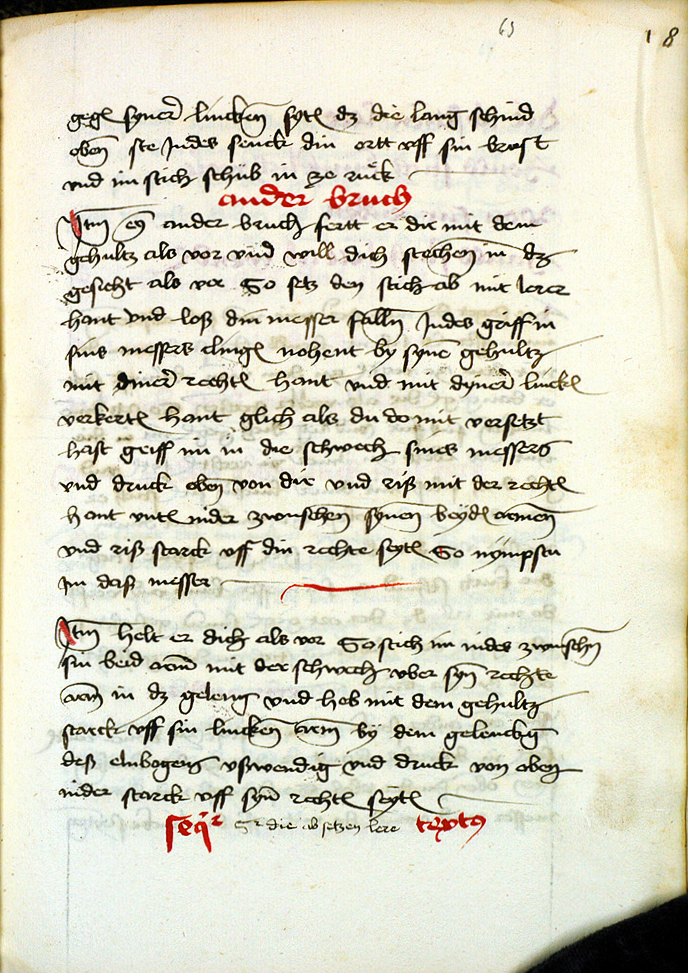 63
1 8
gegē syner̄ linckeñ sytē dz die lang schnid
obeñ ste Indes senck din ortt vff sin brust
vnd im stich schüb in ze rück
ander bruch
Itm̄ eyn ander bruch fertt er dir mit dem
gehultz als vor vnd will dich stecheñ in dz
gesicht als vor So setz den stich ab mit lerer
hant vnd loß din messer fallñ Indes griff in
sins messers clingē nohent by synē gehultz
mit diner̄ rechtē hant vnd mit dyner̄ linckē
verkertē hant glich als du do mit versetzt
hast griff im in die schwech sines messers
vnd druck oben von dir vnd riß mit der rechtē
hant vntē nider zwuscheñ syneñ beydē armeñ
vnd riß starck vff din rechte seytē So nympstu
im daß messer
Itm̄ helt er dich als vor So stich im indes zwuschñ
sin beid arm̄ mit der schwech vber syñ rechte
arm̄ in dz geleng vnd heb mit dem gehultz
starck vff sin linckeñ arm̄ by dem gelenck
deß elnbogens vßwendig vnd druck von oben
nider starck vff syñ rechtē seytē
seqr die ab setzen lere textꝰ